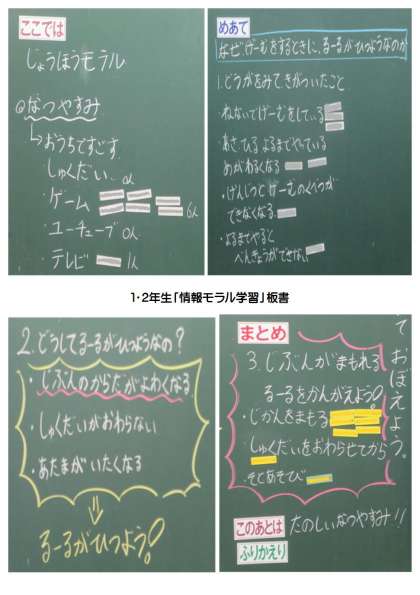 ここでは
じょうほうモラル
◎なつやすみ
↳おうちですごす
しゅくだい 0人
・ゲーム 6人
・ユーチューブ 0人
・テレビ 1人
めあて
なぜげーむをするときに、るーるがひつようなのか
1.どうがをみてきがついたこと
・ねないでげーむをしている
・あさひるよるまでやっている
めがわるくなる
・げんじつとげーむのくべつが
できなくなる
・よるまでやると
べんきょうができない
1・2年生「情報モラル学習」板書
2.どうしてるーるがひつようなの?
・じぶんのからだがよわくなる
・しゅくだいがおわらない
・あたまがいたくなる
⇓
るーるがひつよう!
まとめ
3.じぶんがまもれる
るーるをかんがえよう!
・じかんをまもる
・しゅくだいをおわらせてから
・そとあそび
ておぼえよう。
このあとは たのしいなつやすみ!!
ふりかえり